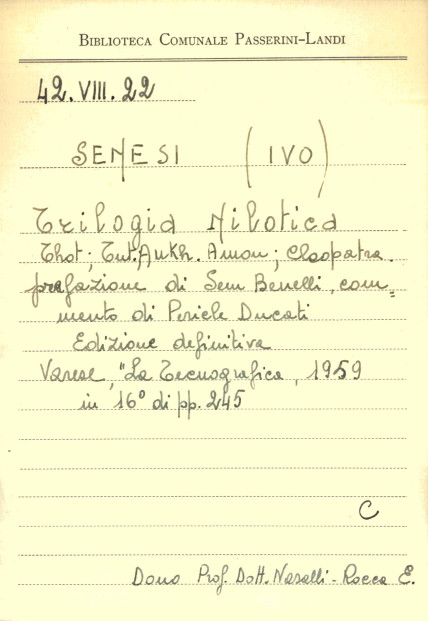 BIBLIOTECA COMUNALE PASSERINI-LANDI
42.VIII.22
SENESI (IVO)
Trilogia Nilotica
Thot; Tut.Ankh.Amon; Cleopatra.
prefazione di Sem Benelli, com=
mento di Pericle Ducati
Edizione definitiva
Varese, "La Tecnografica, 1959
in 16° di pp. 245
C
Dono Prof. Dott. Nasalli-Rocca E.